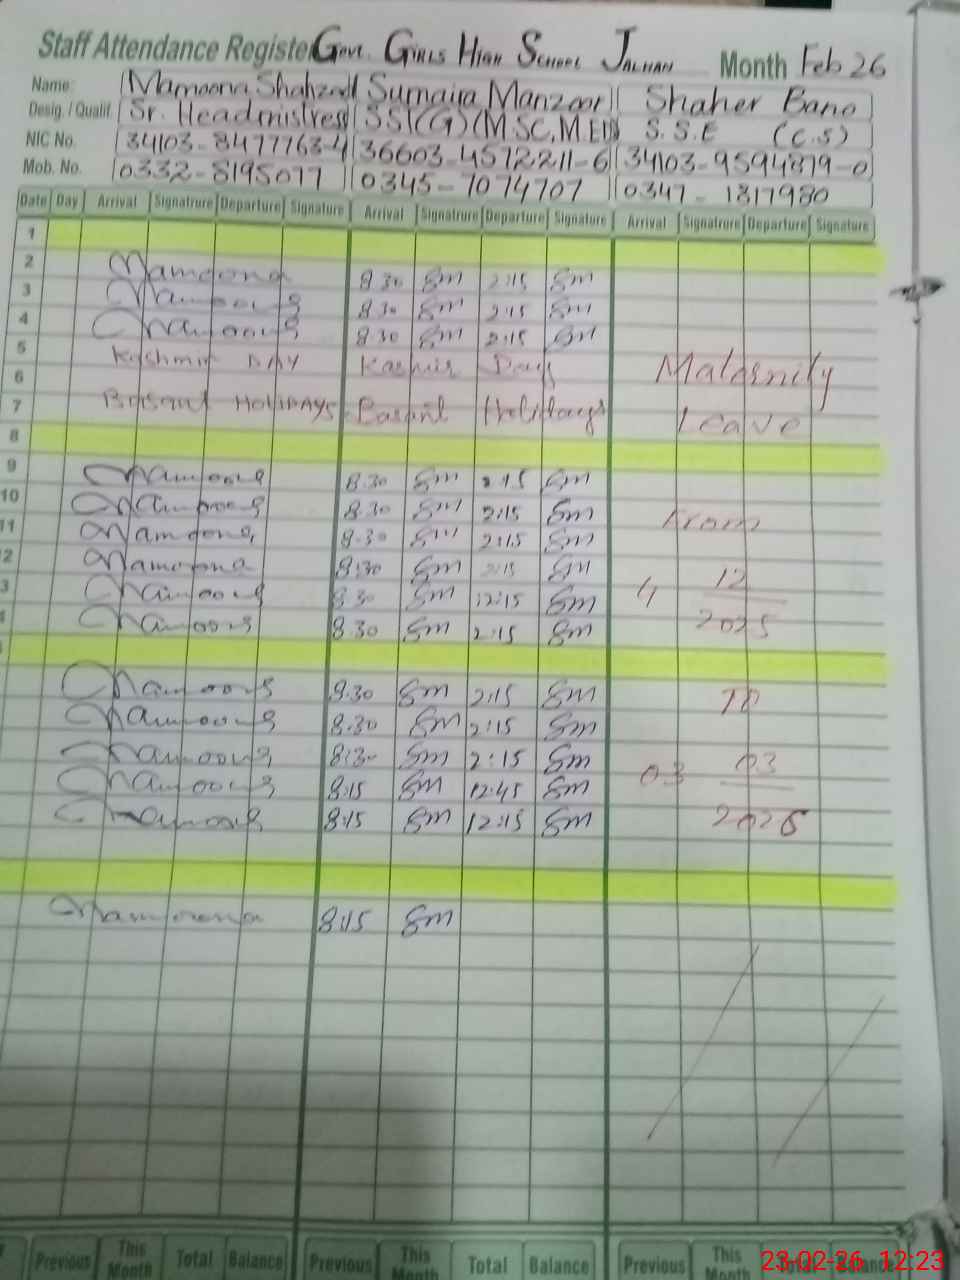 Staff Attendance Register Govt. Girls High School Jalhan Month Feb 26
Name: Mamoona Shahzadi Sumaira Manzoor Shaher Bano
Desig. / Qualif Sr. Headmistress SST(G)(M.SC,M.ED) S.S.E (C.S)
NIC No. 34103-8477763-4 36603-4572211-6 34103-9594879-0
Mob. No. 0332-8195077 0345-7074707 0347-1817980
Date Day Arrival Signatrure Departure Signature Arrival Signatrure Departure Signature Arrival Signatrure Departure Signature
1
2 Mamoona 8 30 Sm 2:15 Sm
3 Mamoona 8 30 Sm 2:15 Sm
4 Mamoona 8 30 Sm 2:15 Sm
5 Kashmir DAY Kashmir Day Maternity
6
7 Basant HOLIDAYS Basant Holidays Leave
8
9 Mamoona 8.30 Sm 2:15 Sm
10 Mamoona 8.30 Sm 2:15 Sm From
11 Mamoona 8.30 Sm 2:15 Sm
2 Mamoona 8:30 Sm 2:15 Sm 12
3 Mamoona 8 30 Sm 12:15 Sm 4
Mamoona 8.30 Sm 2:15 Sm 2025
Mamoona 8.30 Sm 2:15 Sm To
Mamoona 8:30 Sm 2:15 Sm
Mamoona 8:30 Sm 2:15 Sm 03 03
Mamoona 8:15 Sm 12:45 Sm
Mamoona 8:15 Sm 12:15 Sm 2026
Mamoona 8:15 Sm
Previous This Month Total Balance Previous This Month Total Balance Previous This Month Total Balance
23-02-26 12:23